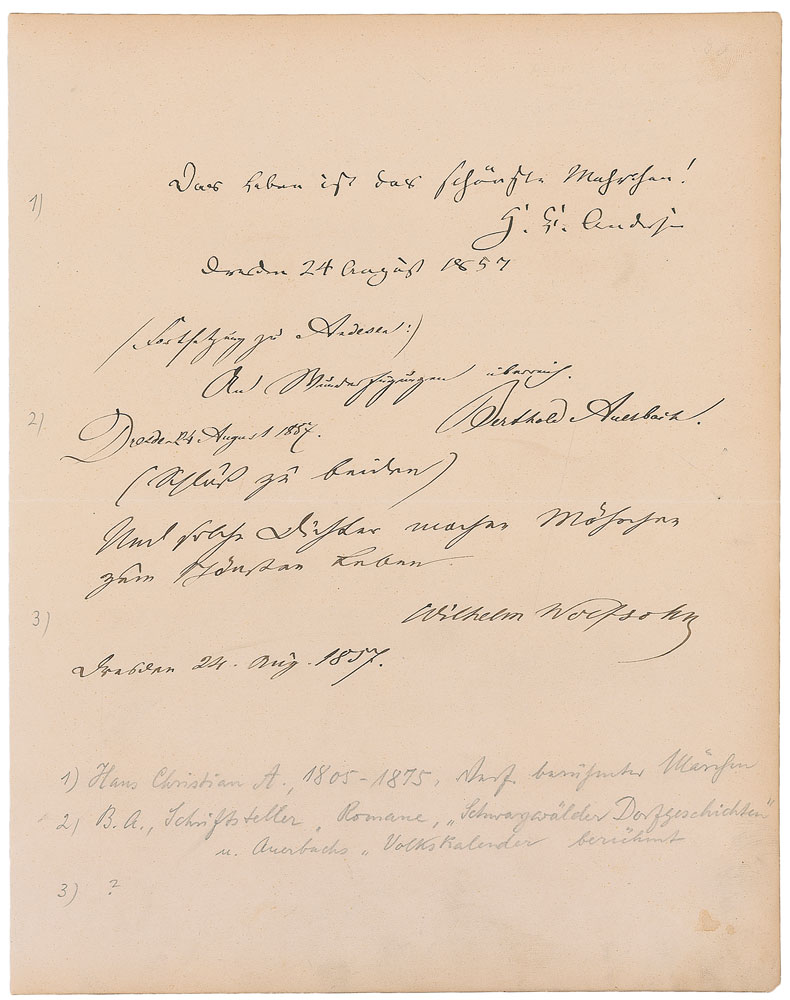 1)
Das Leben ist das schönste Mährchen!
H. C. Andersen
Dresden 24 August 1857
(Fortsetzung zu Andersen:)
An Wunderfügungen überreich.
2)
Berthold Auerbach.
Dresden 24 August 1857.
(Schluß zu beiden)
Und solche Dichter machen Mährchen
zum schönsten Leben
3)
Wilhelm Wolfsohn
Dresden 24. Aug. 1857.
1) Hans Christian A., 1805-1875, Verf. berühmter Märchen
2) B. A., Schriftsteller, Romane, „Schwarzwälder Dorfgeschichten"
u. Auerbachs „Volkskalender berühmt
3) ?